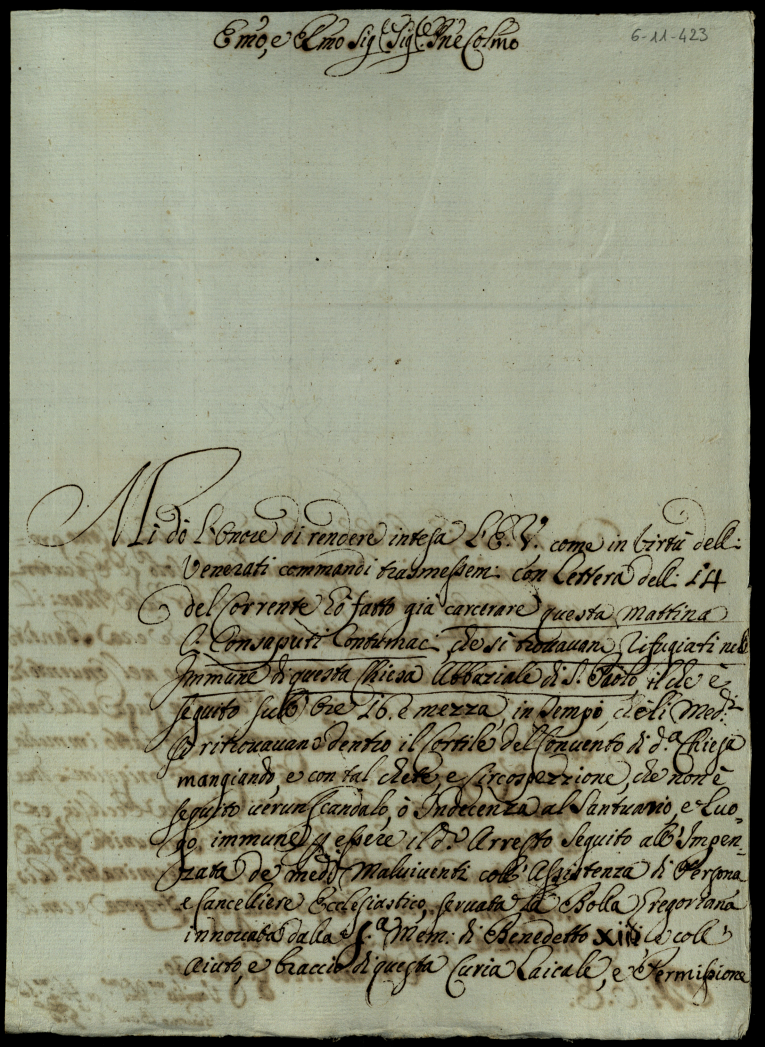 Emo, e Rmo Sigr. Sigr. Pne Colmo
6-11-423
Mi dò l'Onore di rendere intesa l'E. V. come in virtù dell:
Venerati commandi trasmessem: con Lettera dell: 14
del Corrente hò fatto già carcerare questa mattina
li Consaputi Contumac: che si trovavano rifugiati nell
Immune di questa Chiesa Abbaziale di S. Paolo, il che è
seguito sull'Ore 16. e mezza, in tempo, che li Medmi.
si ritrovavano dentro il Cortile del Convento di da. Chiesa
mangiando, e con tal chete, e Circospezzione, che non è
seguito verun scandalo, ò Indecenza al Santuario, e Luo-
go immune, p essere il do. Arresto seguito all'Impen-
zata de' medmi. Malviventi coll'Assistenza di Persona
e Cancelliere Ecclesiastico, servata la Bolla Gregoriana
innovata dalla Sa. Mem: di Benedetto XIII, e coll'
Aiuto, e braccio di questa Curia Laicale, e Permissione